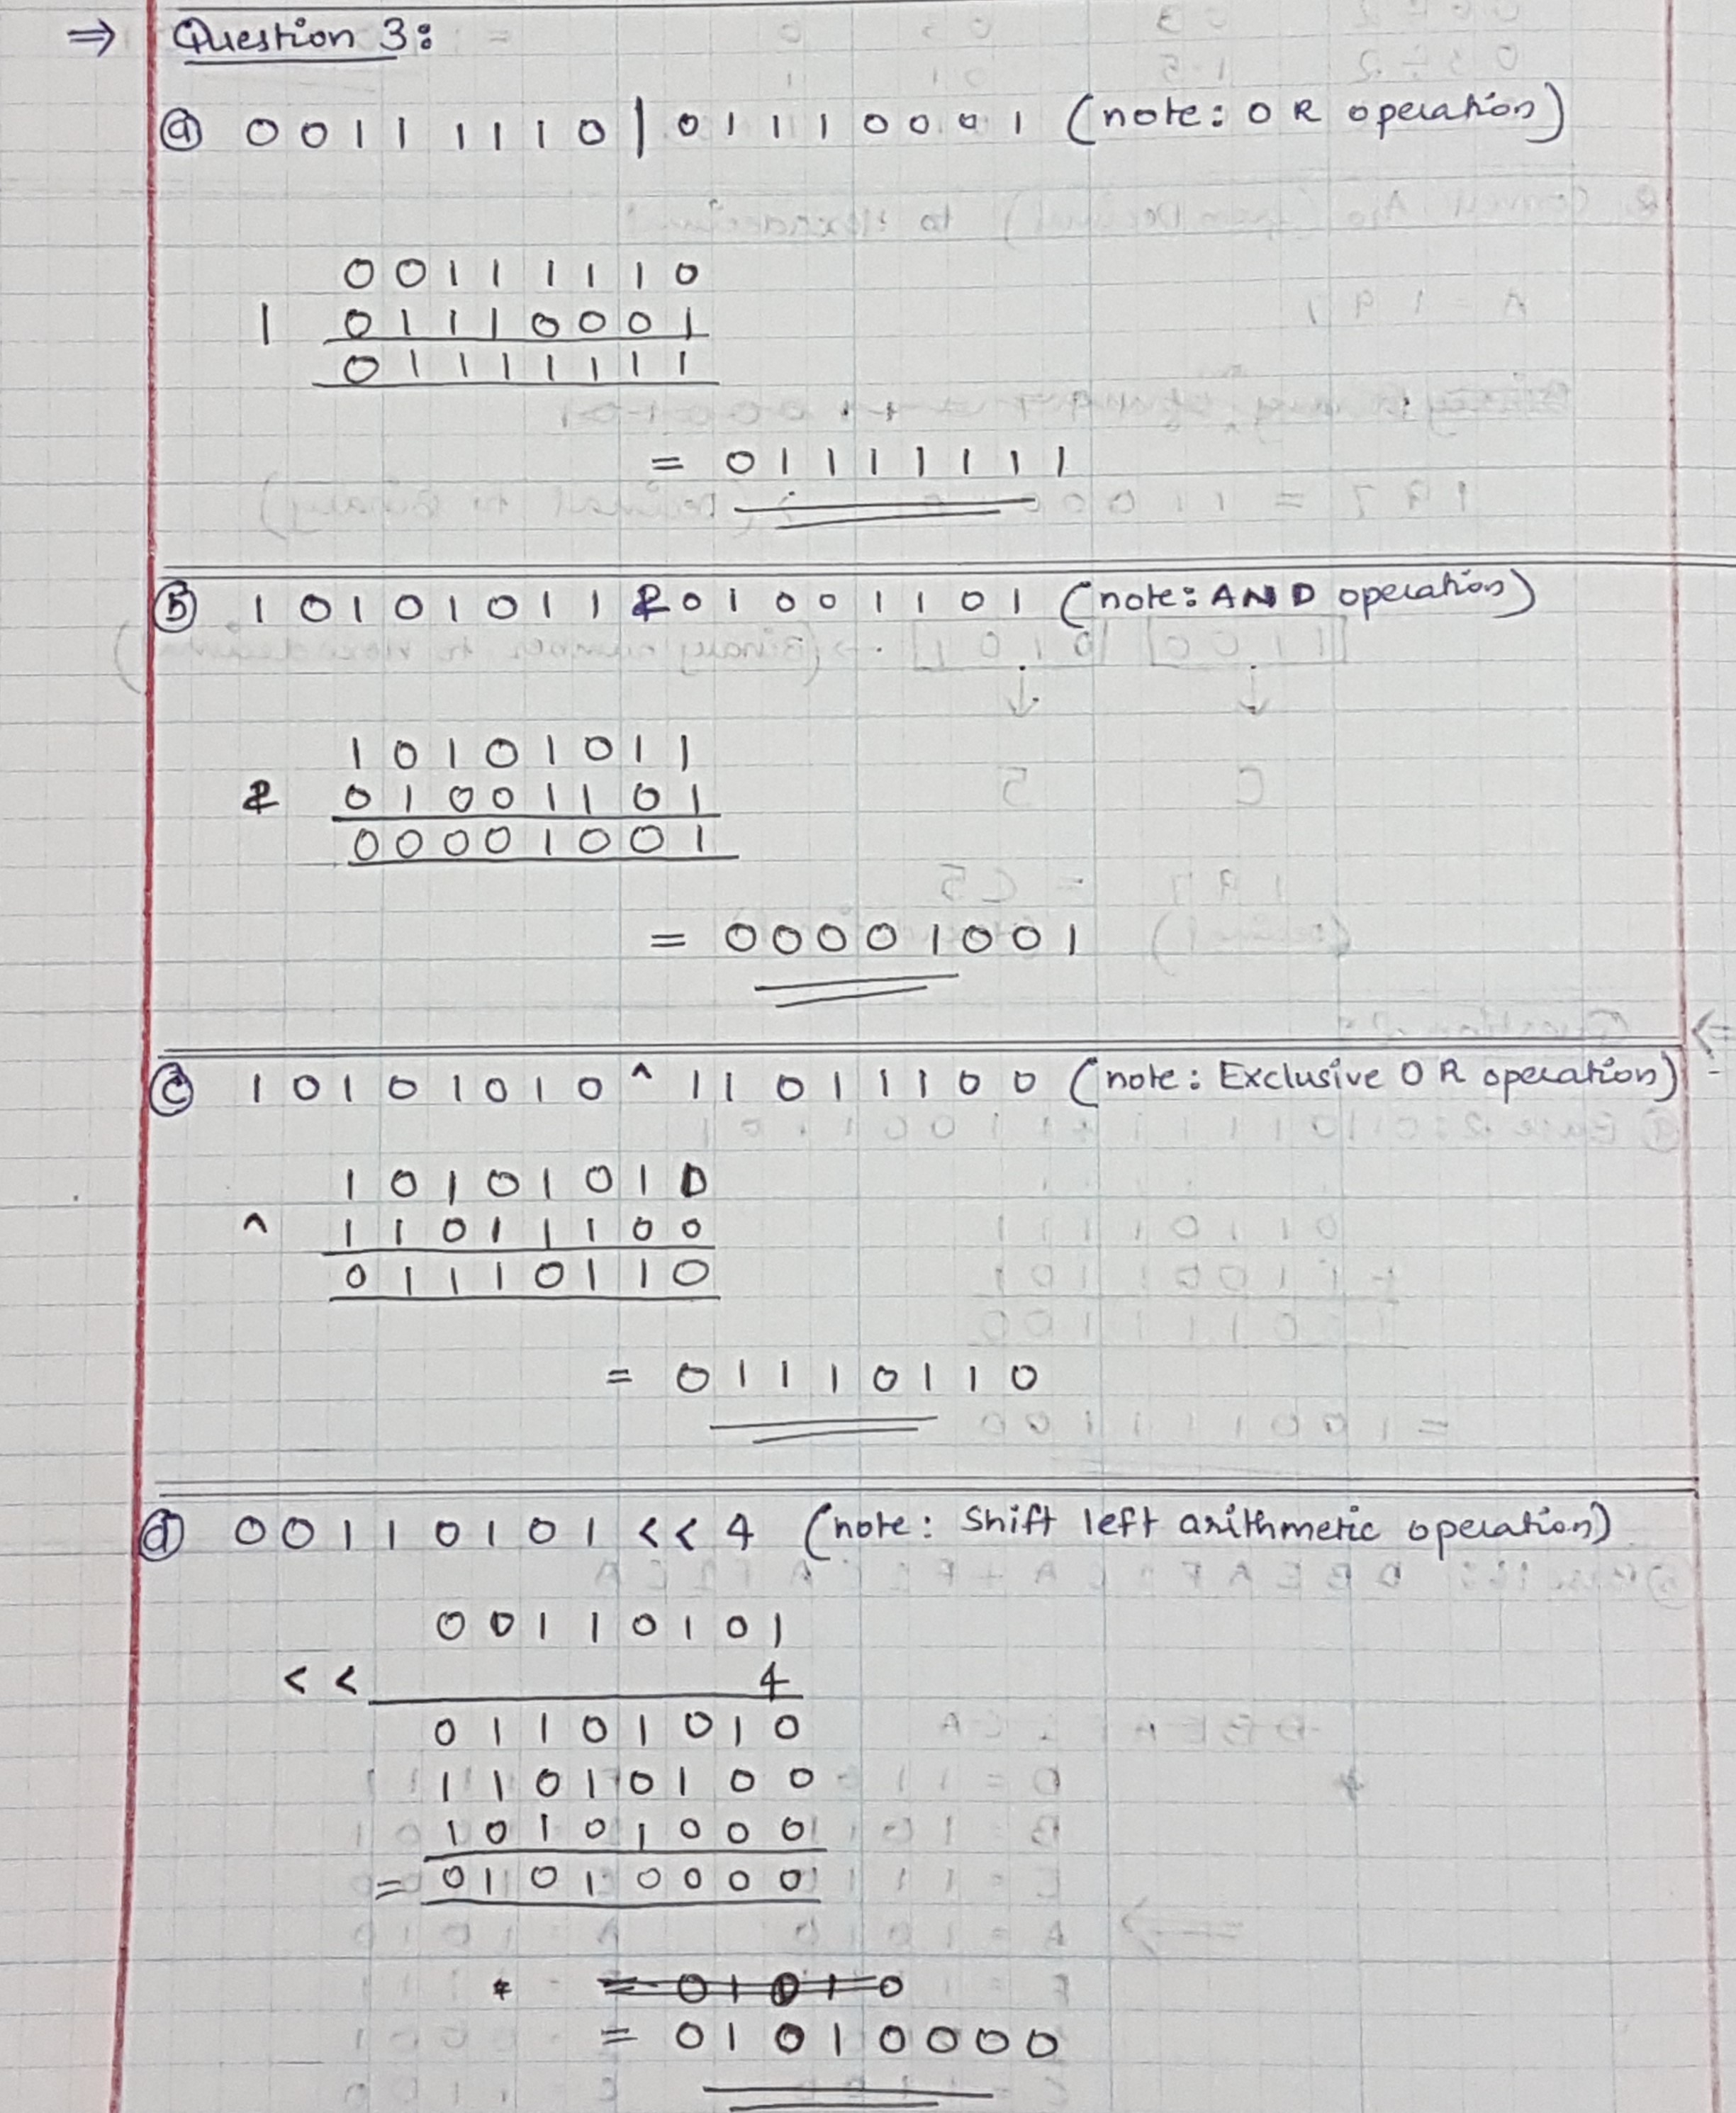 ⇒ Question 3:
ⓐ 0 0 1 1 1 1 1 0 | 0 1 1 1 0 0 0 1 (note: OR operation)
0 0 1 1 1 1 1 0
| 0 1 1 1 0 0 0 1
0 1 1 1 1 1 1 1
= 0 1 1 1 1 1 1 1
ⓑ 1 0 1 0 1 0 1 1 & 0 1 0 0 1 1 0 1 (note: AND operation)
1 0 1 0 1 0 1 1
& 0 1 0 0 1 1 0 1
0 0 0 0 1 0 0 1
= 0 0 0 0 1 0 0 1
ⓒ 1 0 1 0 1 0 1 0 ^ 1 1 0 1 1 1 0 0 (note: Exclusive OR operation)
1 0 1 0 1 0 1 0
^ 1 1 0 1 1 1 0 0
0 1 1 1 0 1 1 0
= 0 1 1 1 0 1 1 0
ⓓ 0 0 1 1 0 1 0 1 << 4 (note: Shift left arithmetic operation)
0 0 1 1 0 1 0 1
<< 4
0 1 1 0 1 0 1 0
1 1 0 1 0 1 0 0
1 0 1 0 1 0 0 0
= 0 1 0 1 0 0 0 0
* = 0 1 0 1 0
= 0 1 0 1 0 0 0 0